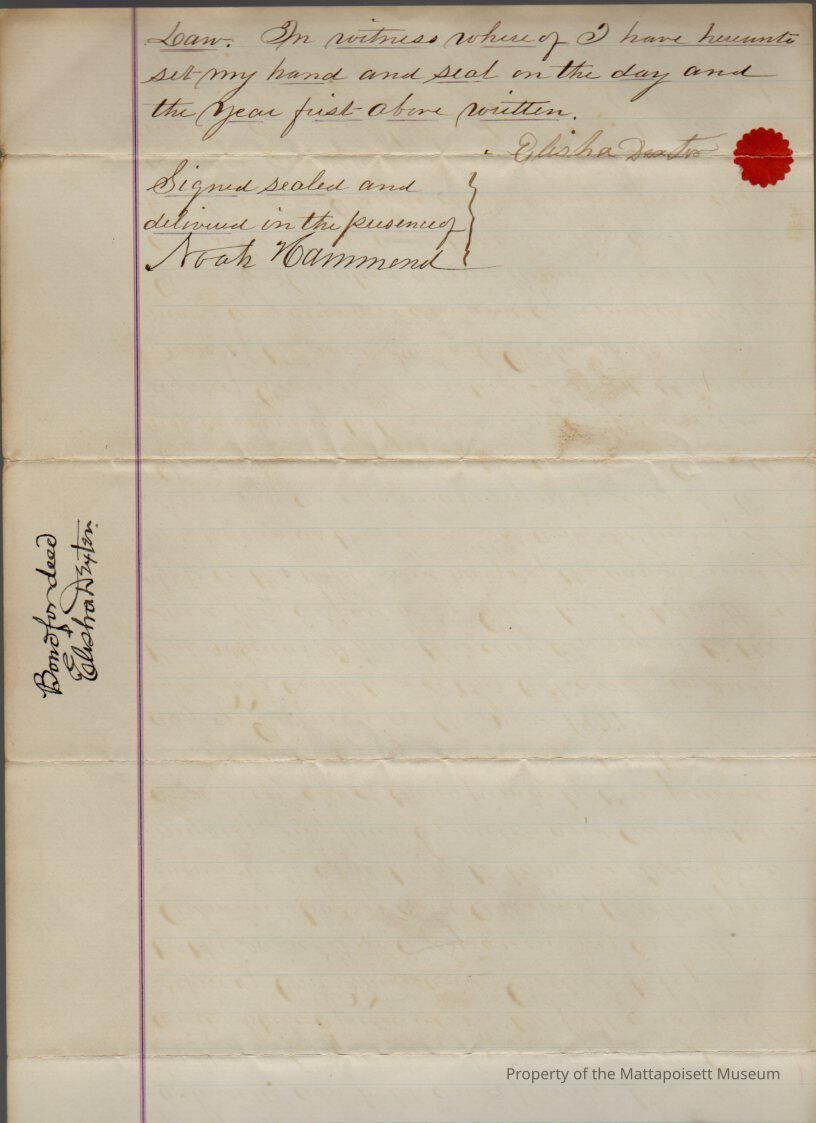 Law. In witness where of I have hereunto
set my hand and seal on the day and
the year first above written.
Elisha Dexter
Signed sealed and
delivered in the presence of
Noah Hammond
Bond for deed
Elisha Dexter.
Property of the Mattapoisett Museum